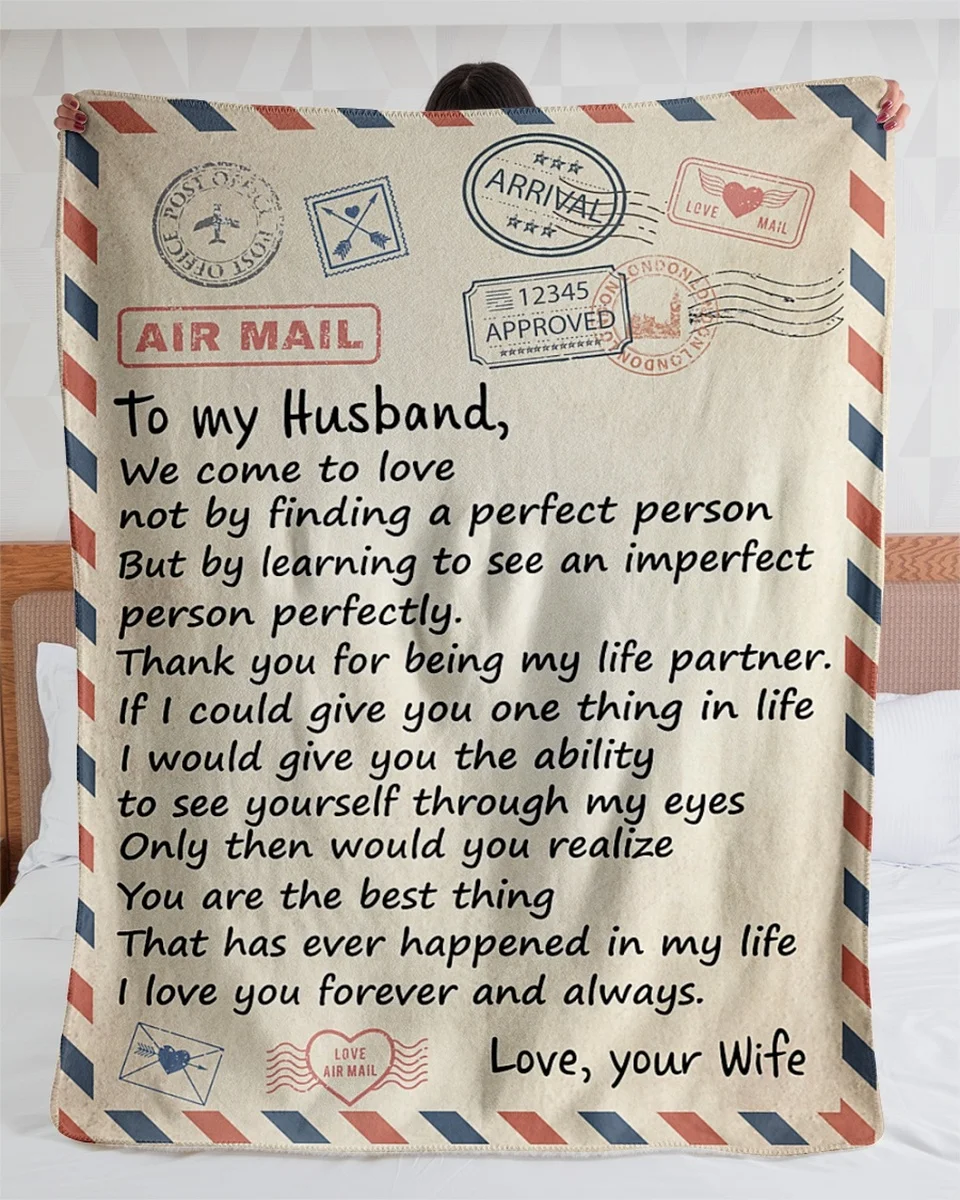 POST OFFICE POST OFFICE
ARRIVAL
LOVE
MAIL
12345
APPROVED
LONDON LONDON LONDON LONDON
AIR MAIL
To my Husband,
We come to love
not by finding a perfect person
But by learning to see an imperfect
person perfectly.
Thank you for being my life partner.
If I could give you one thing in life
I would give you the ability
to see yourself through my eyes
Only then would you realize
You are the best thing
That has ever happened in my life
I love you forever and always.
LOVE
AIR MAIL
Love, your Wife